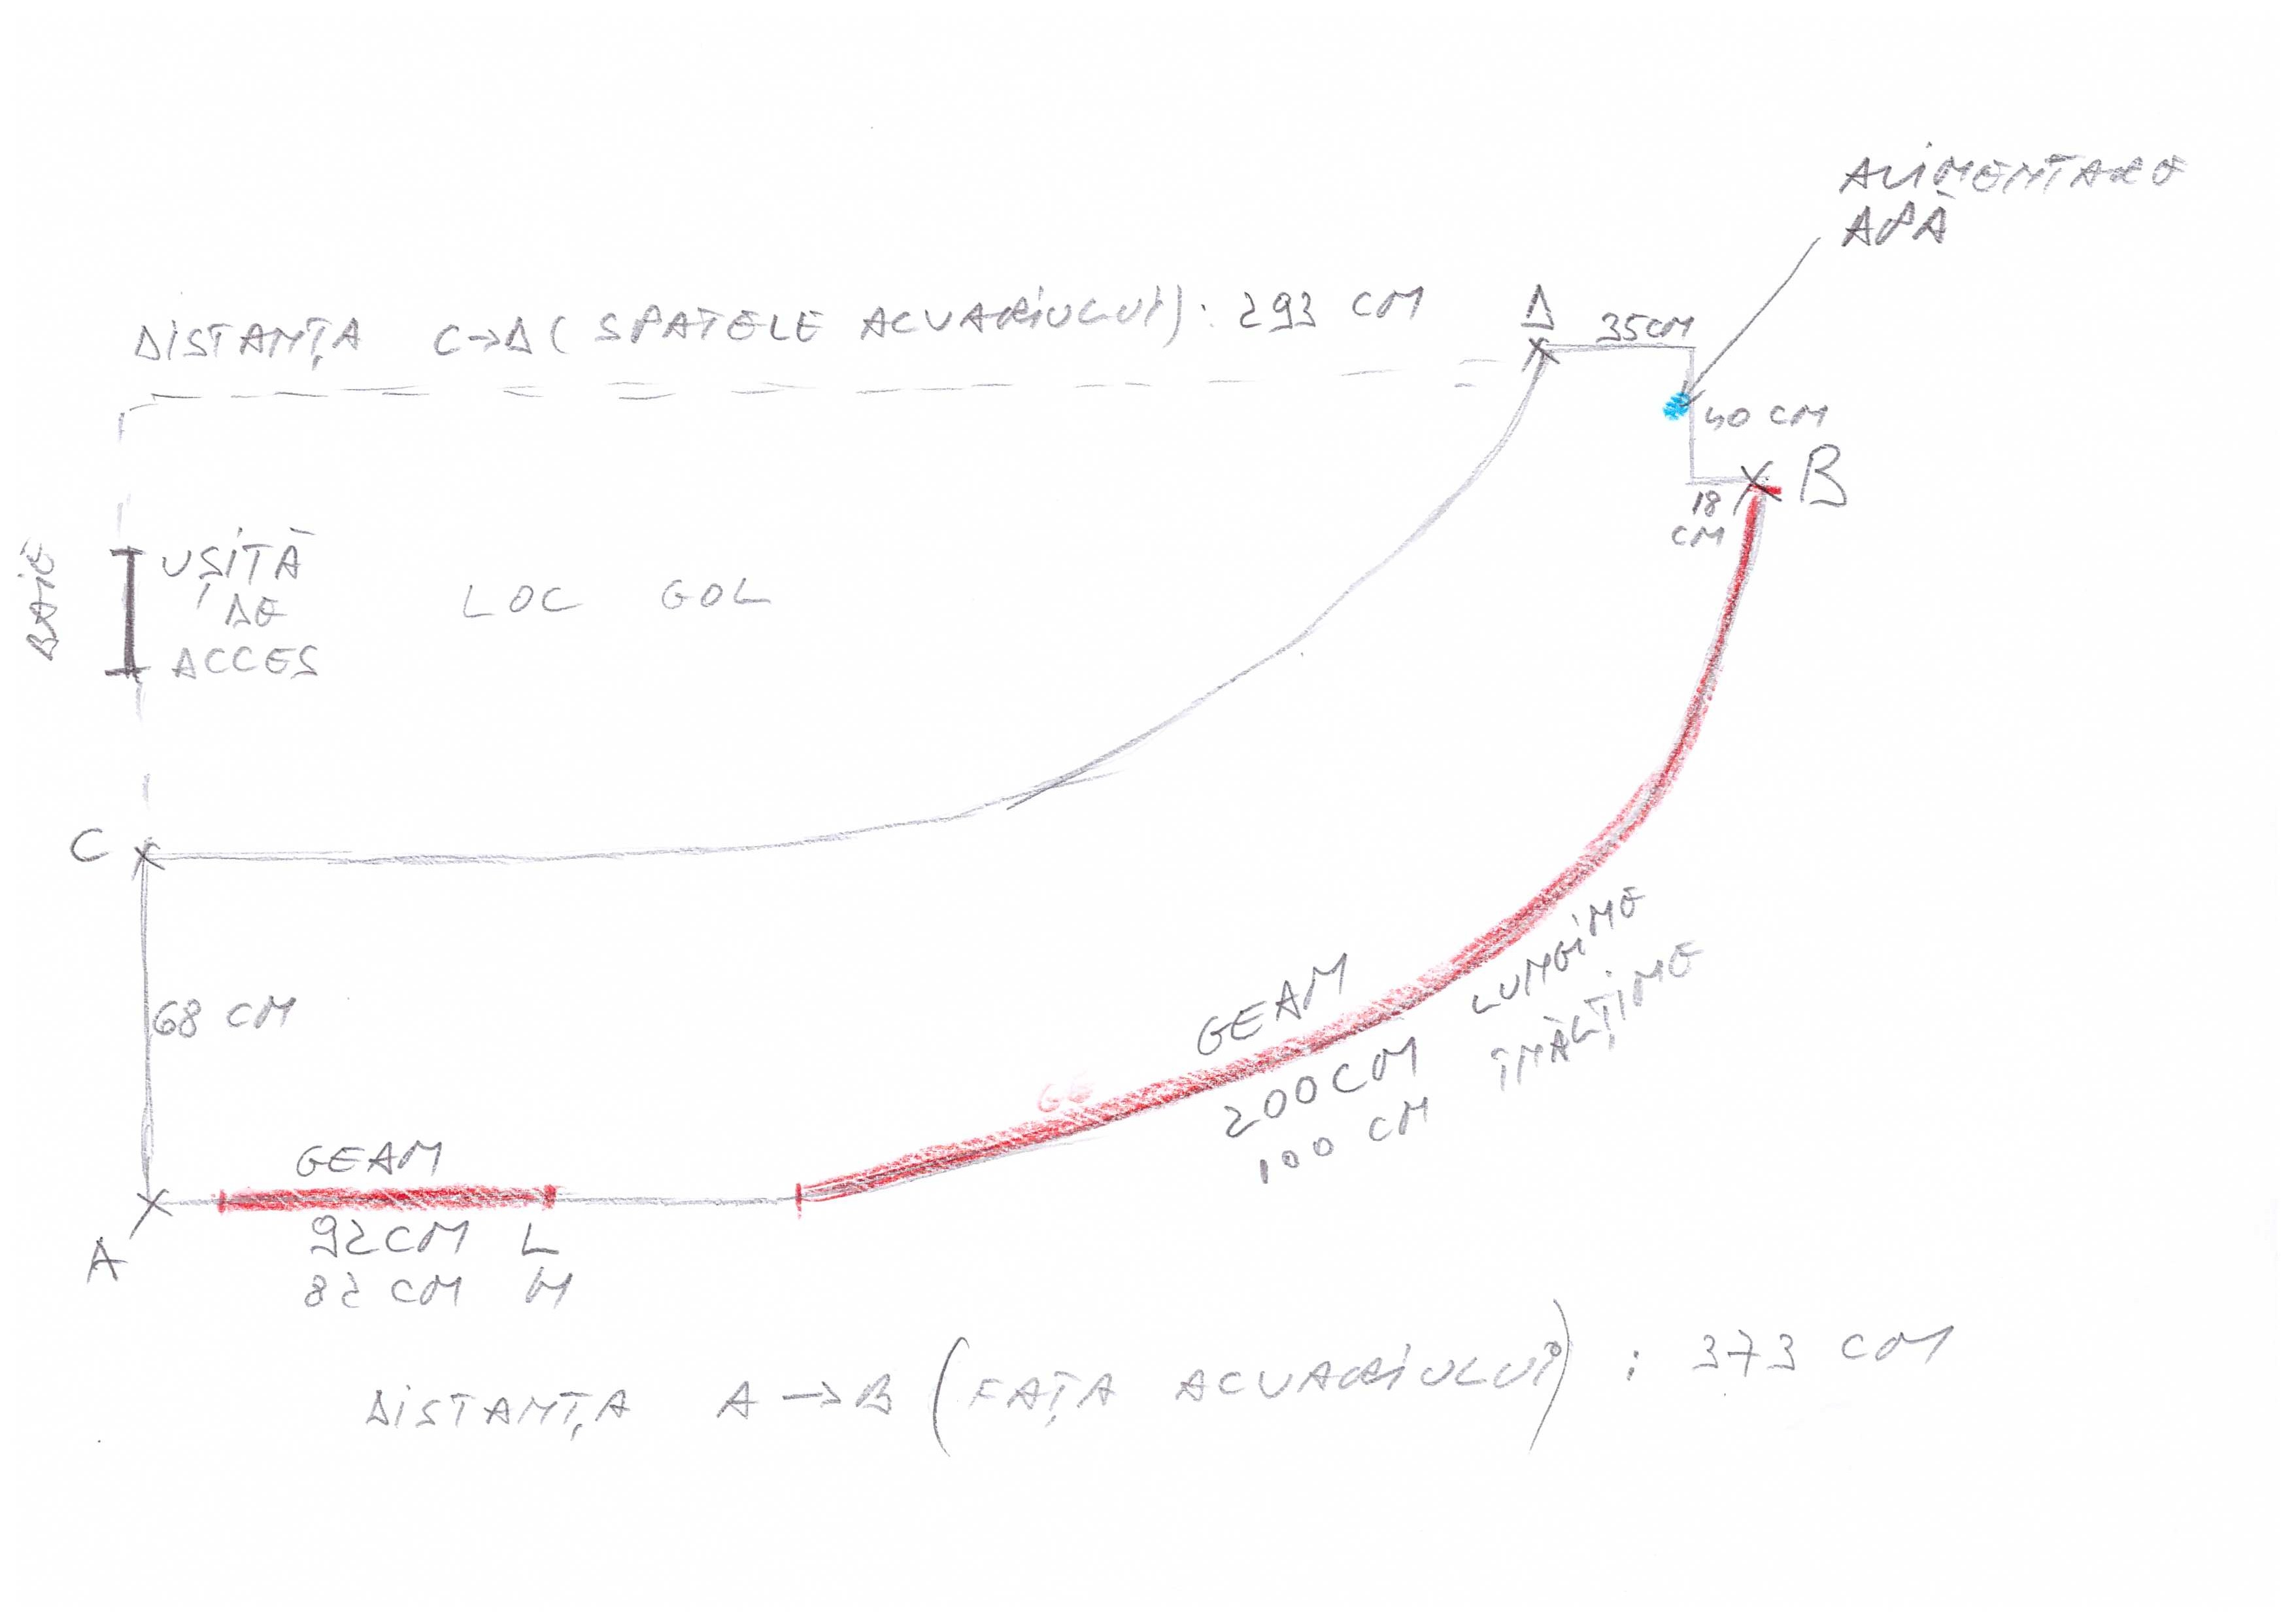 ALIMENTARE
APĂ
DISTANȚA C→D (SPATELE ACVARIULUI): 293 CM
D
35CM
40 CM
B
18
CM
BAIE
UȘIȚĂ
DE
ACCES
LOC GOL
C
68 CM
GEAM
200CM LUNGIME
100 CM ÎNĂLȚIME
GEAM
92CM L
82 CM H
A
DISTANȚA A→B (FAȚA ACVARIULUI): 373 CM